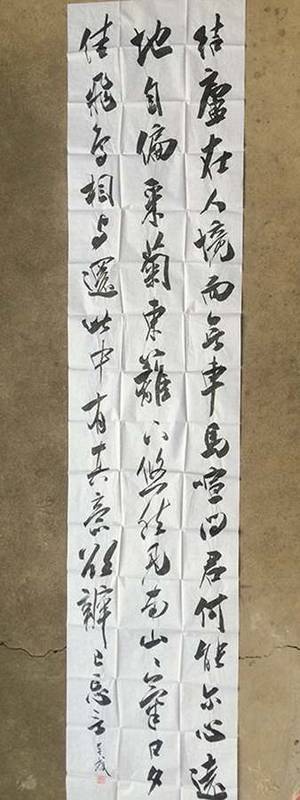 结廬在人境而无車馬喧问君何能尔心遠
地自偏采菊东籬下悠然见南山々氣日夕
佳飛鸟相与還此中有真意欲辨已忘言